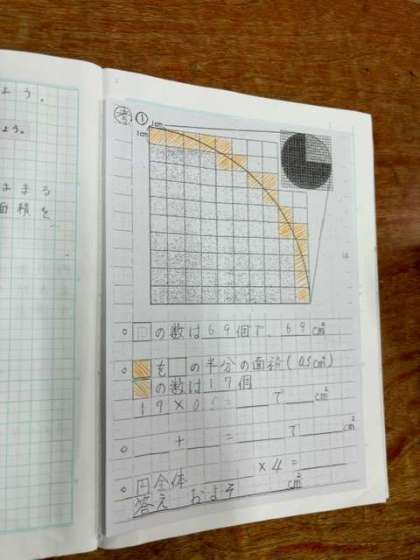 よう。
よう。
はまる
面積を
考 ①
1cm
1cm
の数は69個で 69cm²
を□の半分の面積(0.5cm²)
の数は17個
17×0.5=___で___cm²
___+___=___で___cm²
円全体 ×4=
答え およそ cm²